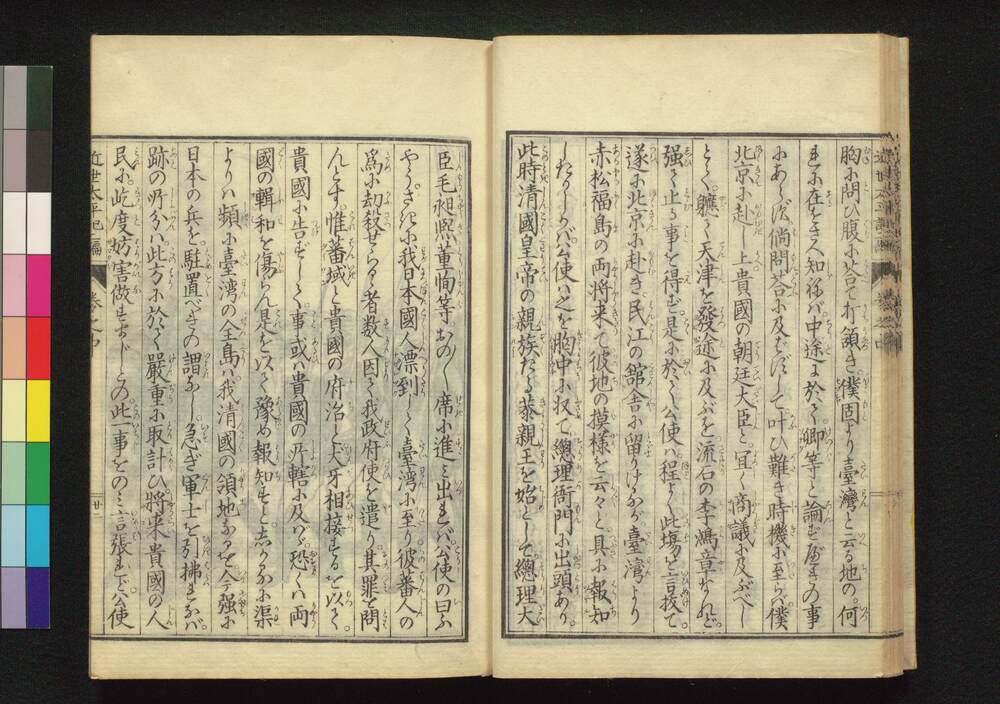 胸に問ひ腹に答て打領き僕固より臺灣と云る地の何
れに在をさへ知ねバ中途に於て卿等と論ずべきの事
にあらず倘問答に及ばずして叶ひ難き時機に至らバ僕
北京に赴し上貴國の朝廷大臣と宜く商議に及ぶべし
とて軈て天津を發途に及ぶを流石の李鴻章なれど
强て止る事を得ず是に於て公使ハ程よく此塲を言拔て
遂に北京に赴き民江の舘舎に留りけるが臺灣より
赤松福島の両將来て彼地の摸樣を云々と具に報知
したりしかバ公使ハ之を胸中に収て總理衙門に出頭あり
此時清國皇帝の親族たる恭親王を始として總理大
臣毛昶熈董恂等おの〳〵席に進み出れバ公使の曰ふ
やう先に我日本國人漂到して臺灣に至り彼蕃人の
爲に却殺せらるゝ者数人因て我政府使を遣り其罪を問
んとす惟蕃域と貴國の府治と犬牙相接するを以て
貴國に告ずして事或ハ貴國の所轄に及バゞ恐くハ両
國の輯和を傷らん是を以て豫め報知すと志かるに渠
よりハ頻に臺湾の全島ハ我清國の領地なるを今强に
日本の兵を駐置べきの謂なし急ぎ軍士を引拂ふなバ
跡の所分ハ此方に於て嚴重に取計ひ將来貴國の人
民に此度妨害做すまじとの此一事をのミ言張れど公使
近世太平記二編
廿二